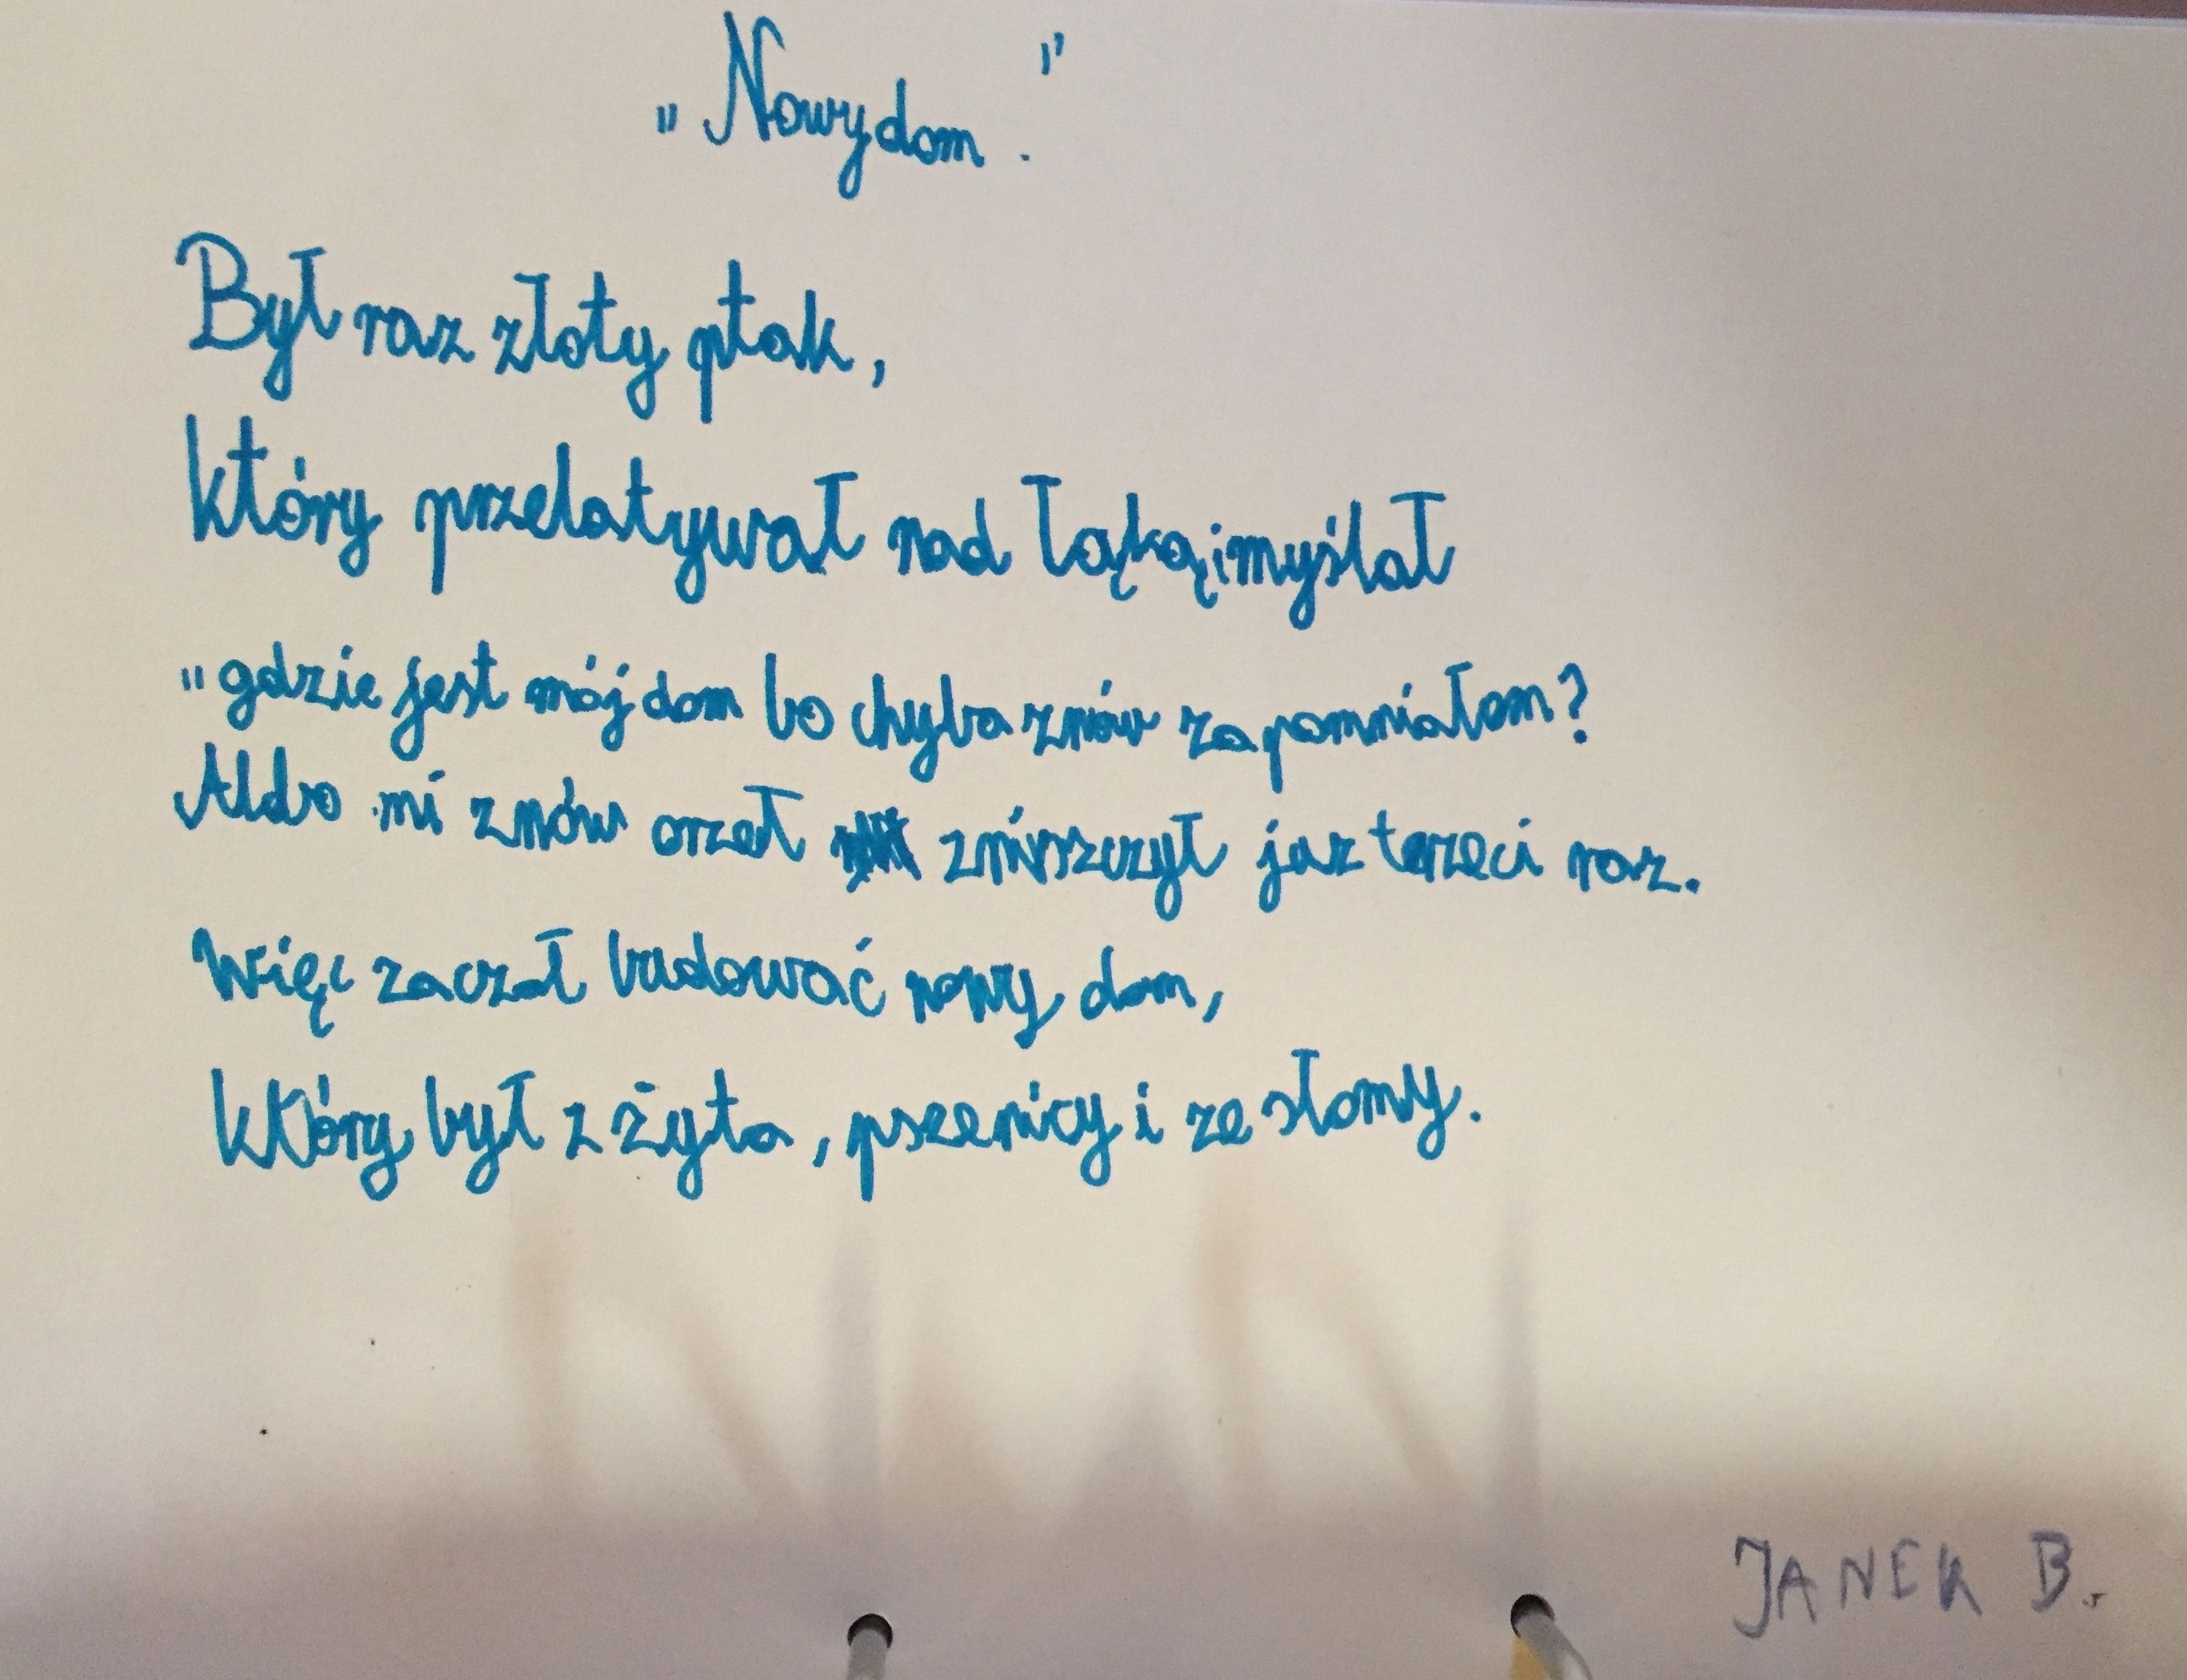 „Nowy dom."
Był raz złoty ptak,
który przelatywał nad łąką i myślał
„gdzie jest mój dom bo chyba znów zapomniałem?
Aldo mi znów orzeł zniszczył jaz terzeci raz.
Więc zaczął budować nowy dom,
Który był z żyta, pszenicy i ze słomy.
JANEK B.